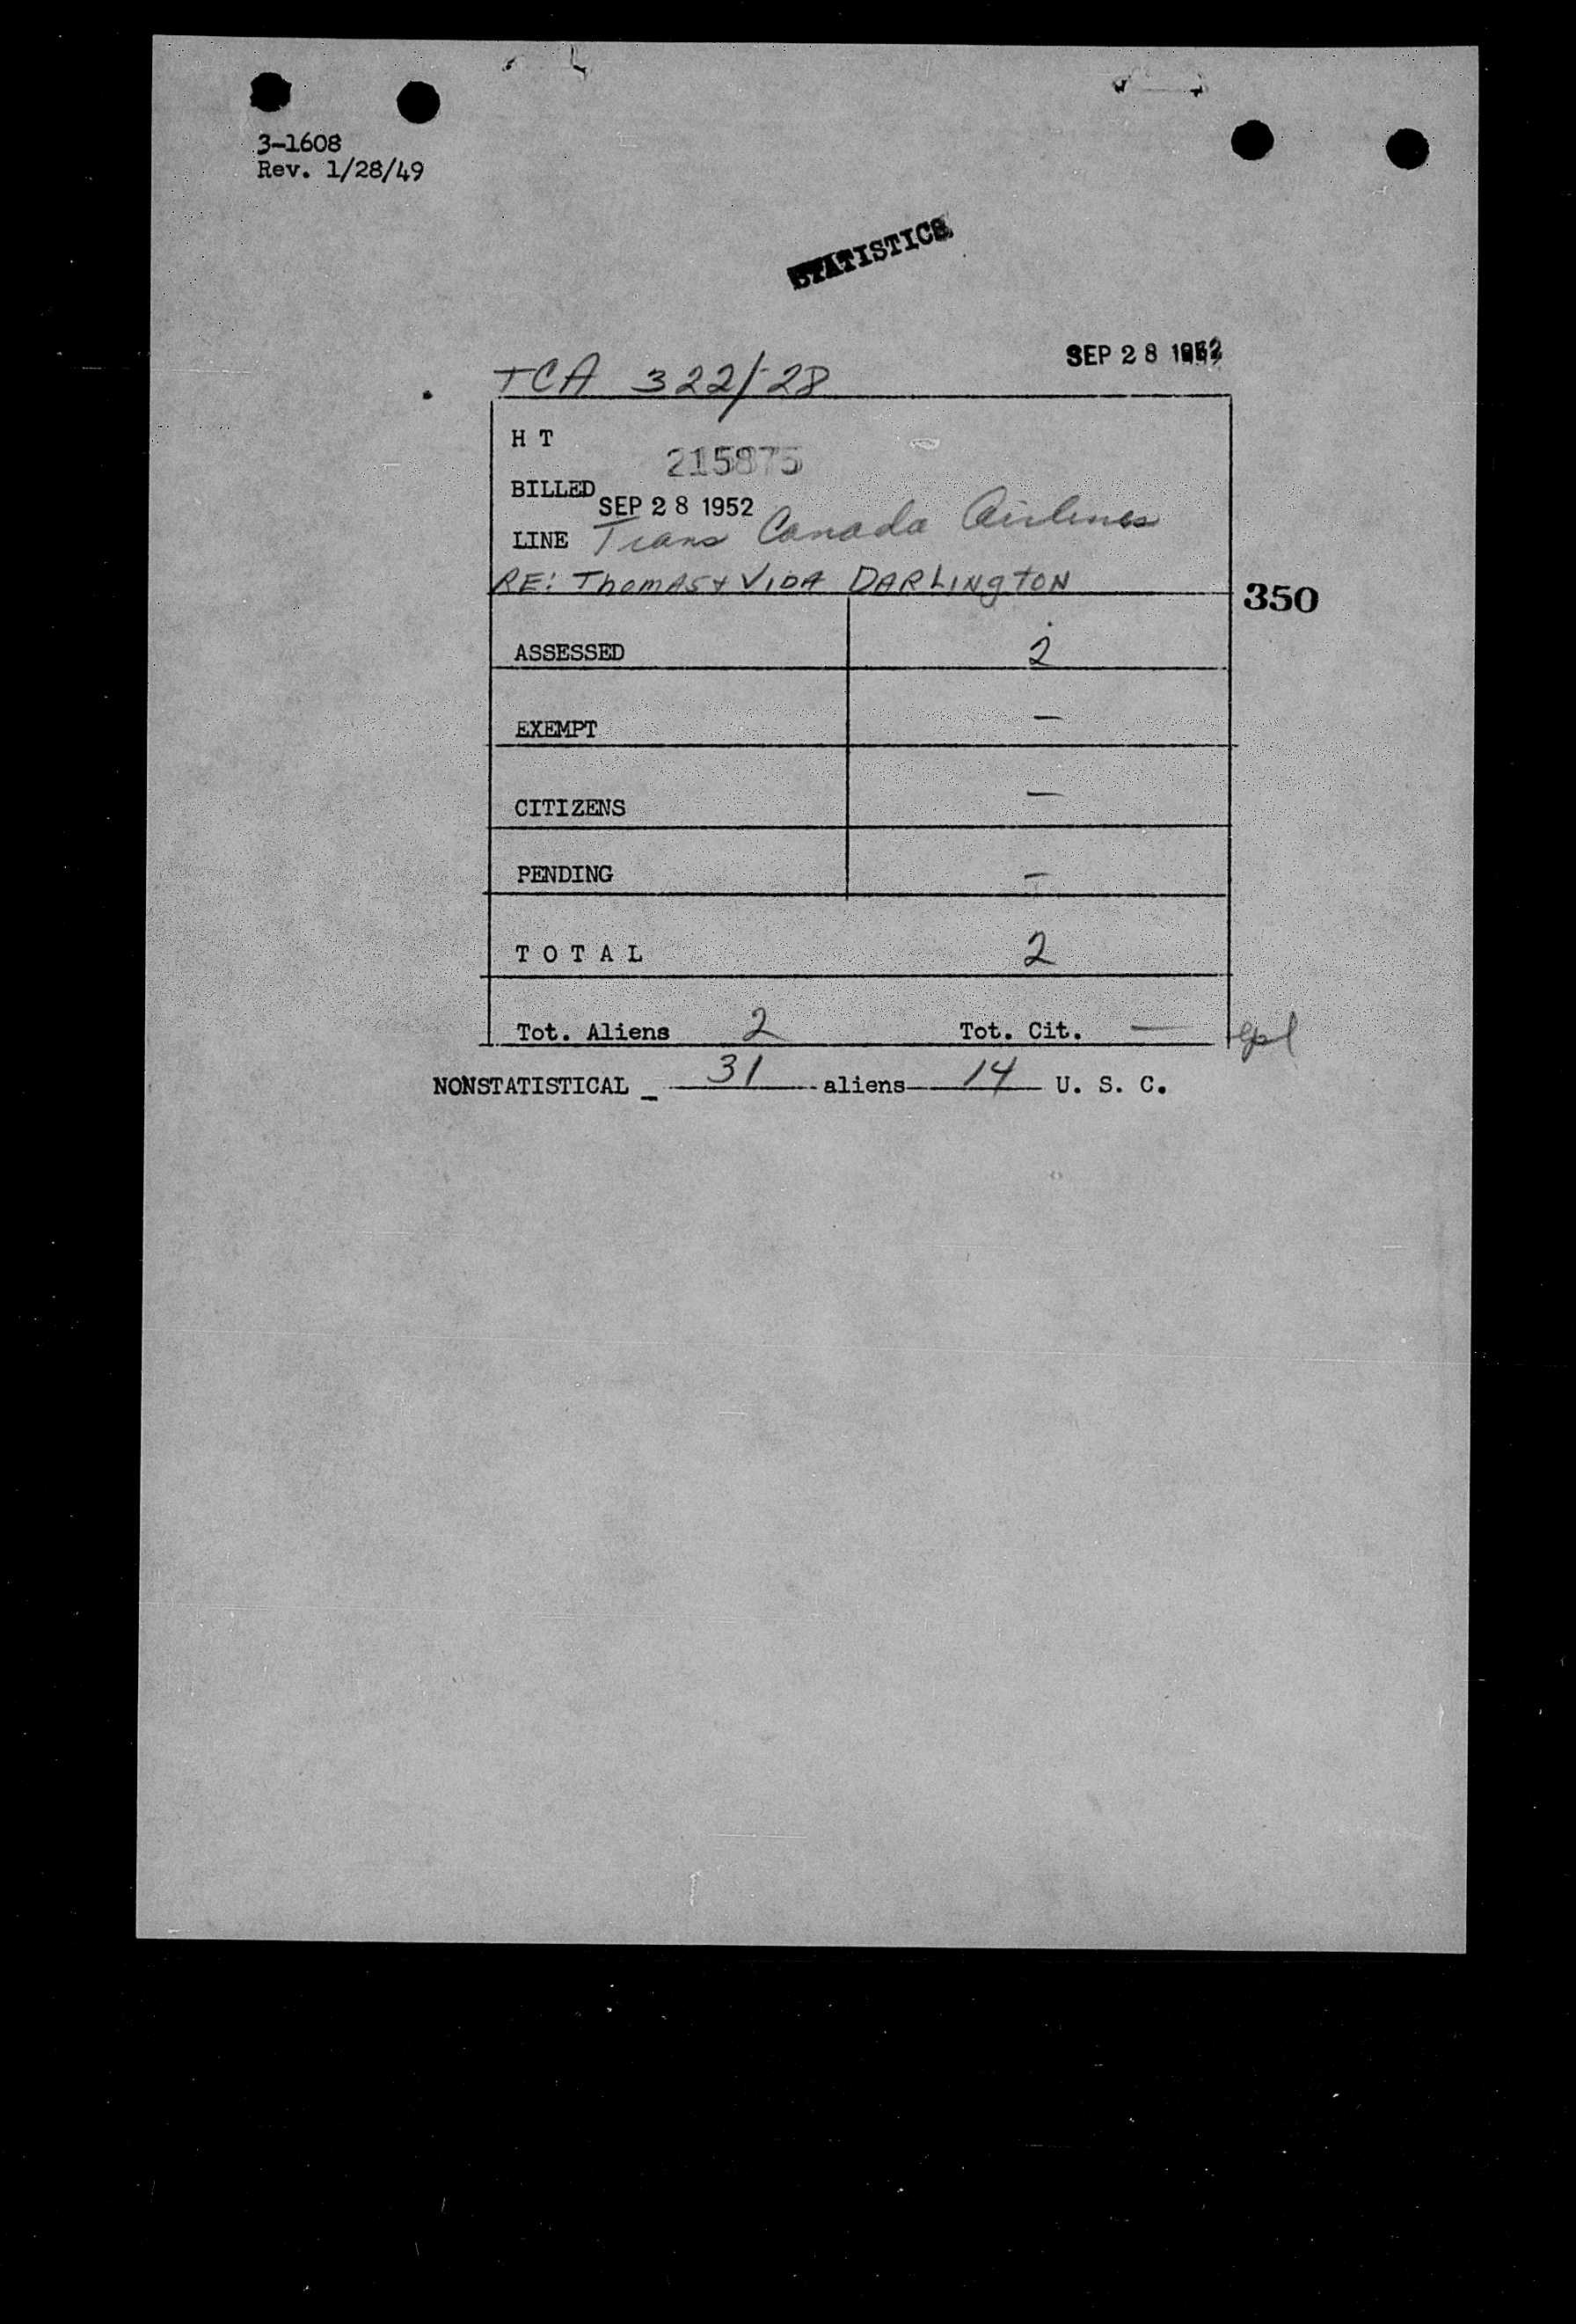 3-1608
Rev. 1/28/49
STATISTICS
SEP 28 1952
TCA 322/-28
H T
215875
BILLED
SEP 28 1952
LINE Trans Canada Airlines
RE: Thomas + VIDA DARLINgTON
350
ASSESSED 2
EXEMPT —
CITIZENS —
PENDING —
T O T A L 2
Tot. Aliens 2 Tot. Cit. —
NONSTATISTICAL _ 31 aliens 14 U. S. C.